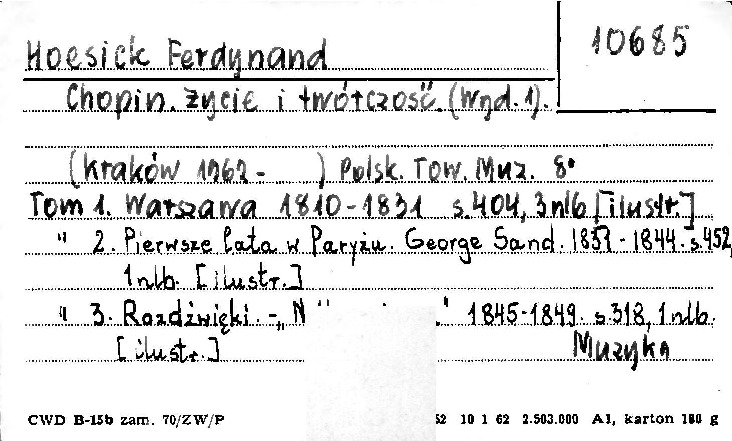 10685
Hoesick Ferdynand
Chopin. Życie i twórczość. (Wyd. 1).
(Kraków 1962 - ) Polsk. Tow. Muz. 8°
Tom 1. Warszawa 1810-1831 s.404, 3nlb [ilustr.]
" 2. Pierwsze lata w Paryżu. George Sand. 1831-1844. s.452,
1nlb. [ilustr.]
" 3. Rozdźwięki. - „N " 1845-1849. s.318, 1nlb.
[ilustr.]
Muzyka
CWD B-15b zam. 70/ZW/P 52 10 1 62 2.503.000 A1, karton 180 g